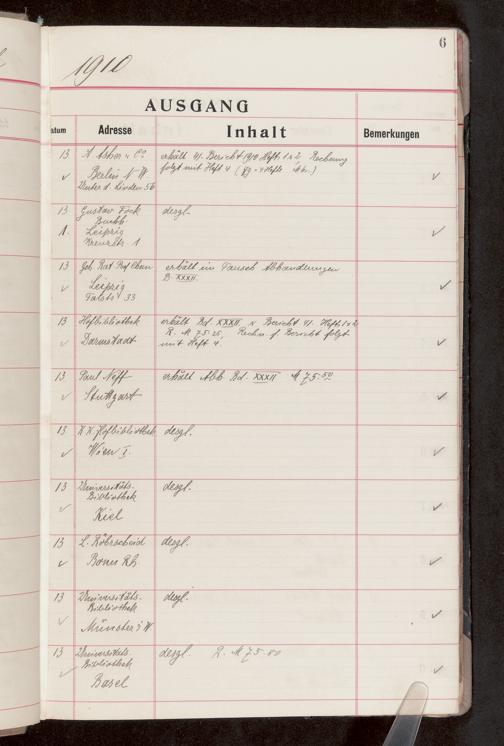 6
1910
AUSGANG
atum Adresse Inhalt Bemerkungen
13 A Asher & Co. erhält 41. Bericht 1910 Heft 1 & 2, Rechnung
✓ Berlin N W folgt mit Heft 4
Unter d. Linden 56
13 Gustav Fock desgl.
Buchh.
1. Leipzig
13 Geh. Rat Prof Chun erhält in Tausch Abhandlungen
B. XXXII.
✓ Leipzig
33
13 Hofbibliothek erhält Bd. XXXII & Bericht 41. Heft 1 & 2
R. M 75.25, Rechn. f Bericht folgt
✓ Darmstadt mit Heft 4.
13 Paul Neff erhält Abh Bd. XXXII M 75.50
✓ Stuttgart
13 K K Hofbibliothek desgl.
✓ Wien I.
13 Universitäts- desgl.
Bibliothek
✓ Kiel
13 L. Röhrscheid desgl.
✓ Bonn Rh
13 Universitäts- desgl.
Bibliothek
✓ Münster i W.
13 Universitäts- desgl. R. M 75.80
Bibliothek
✓ Basel